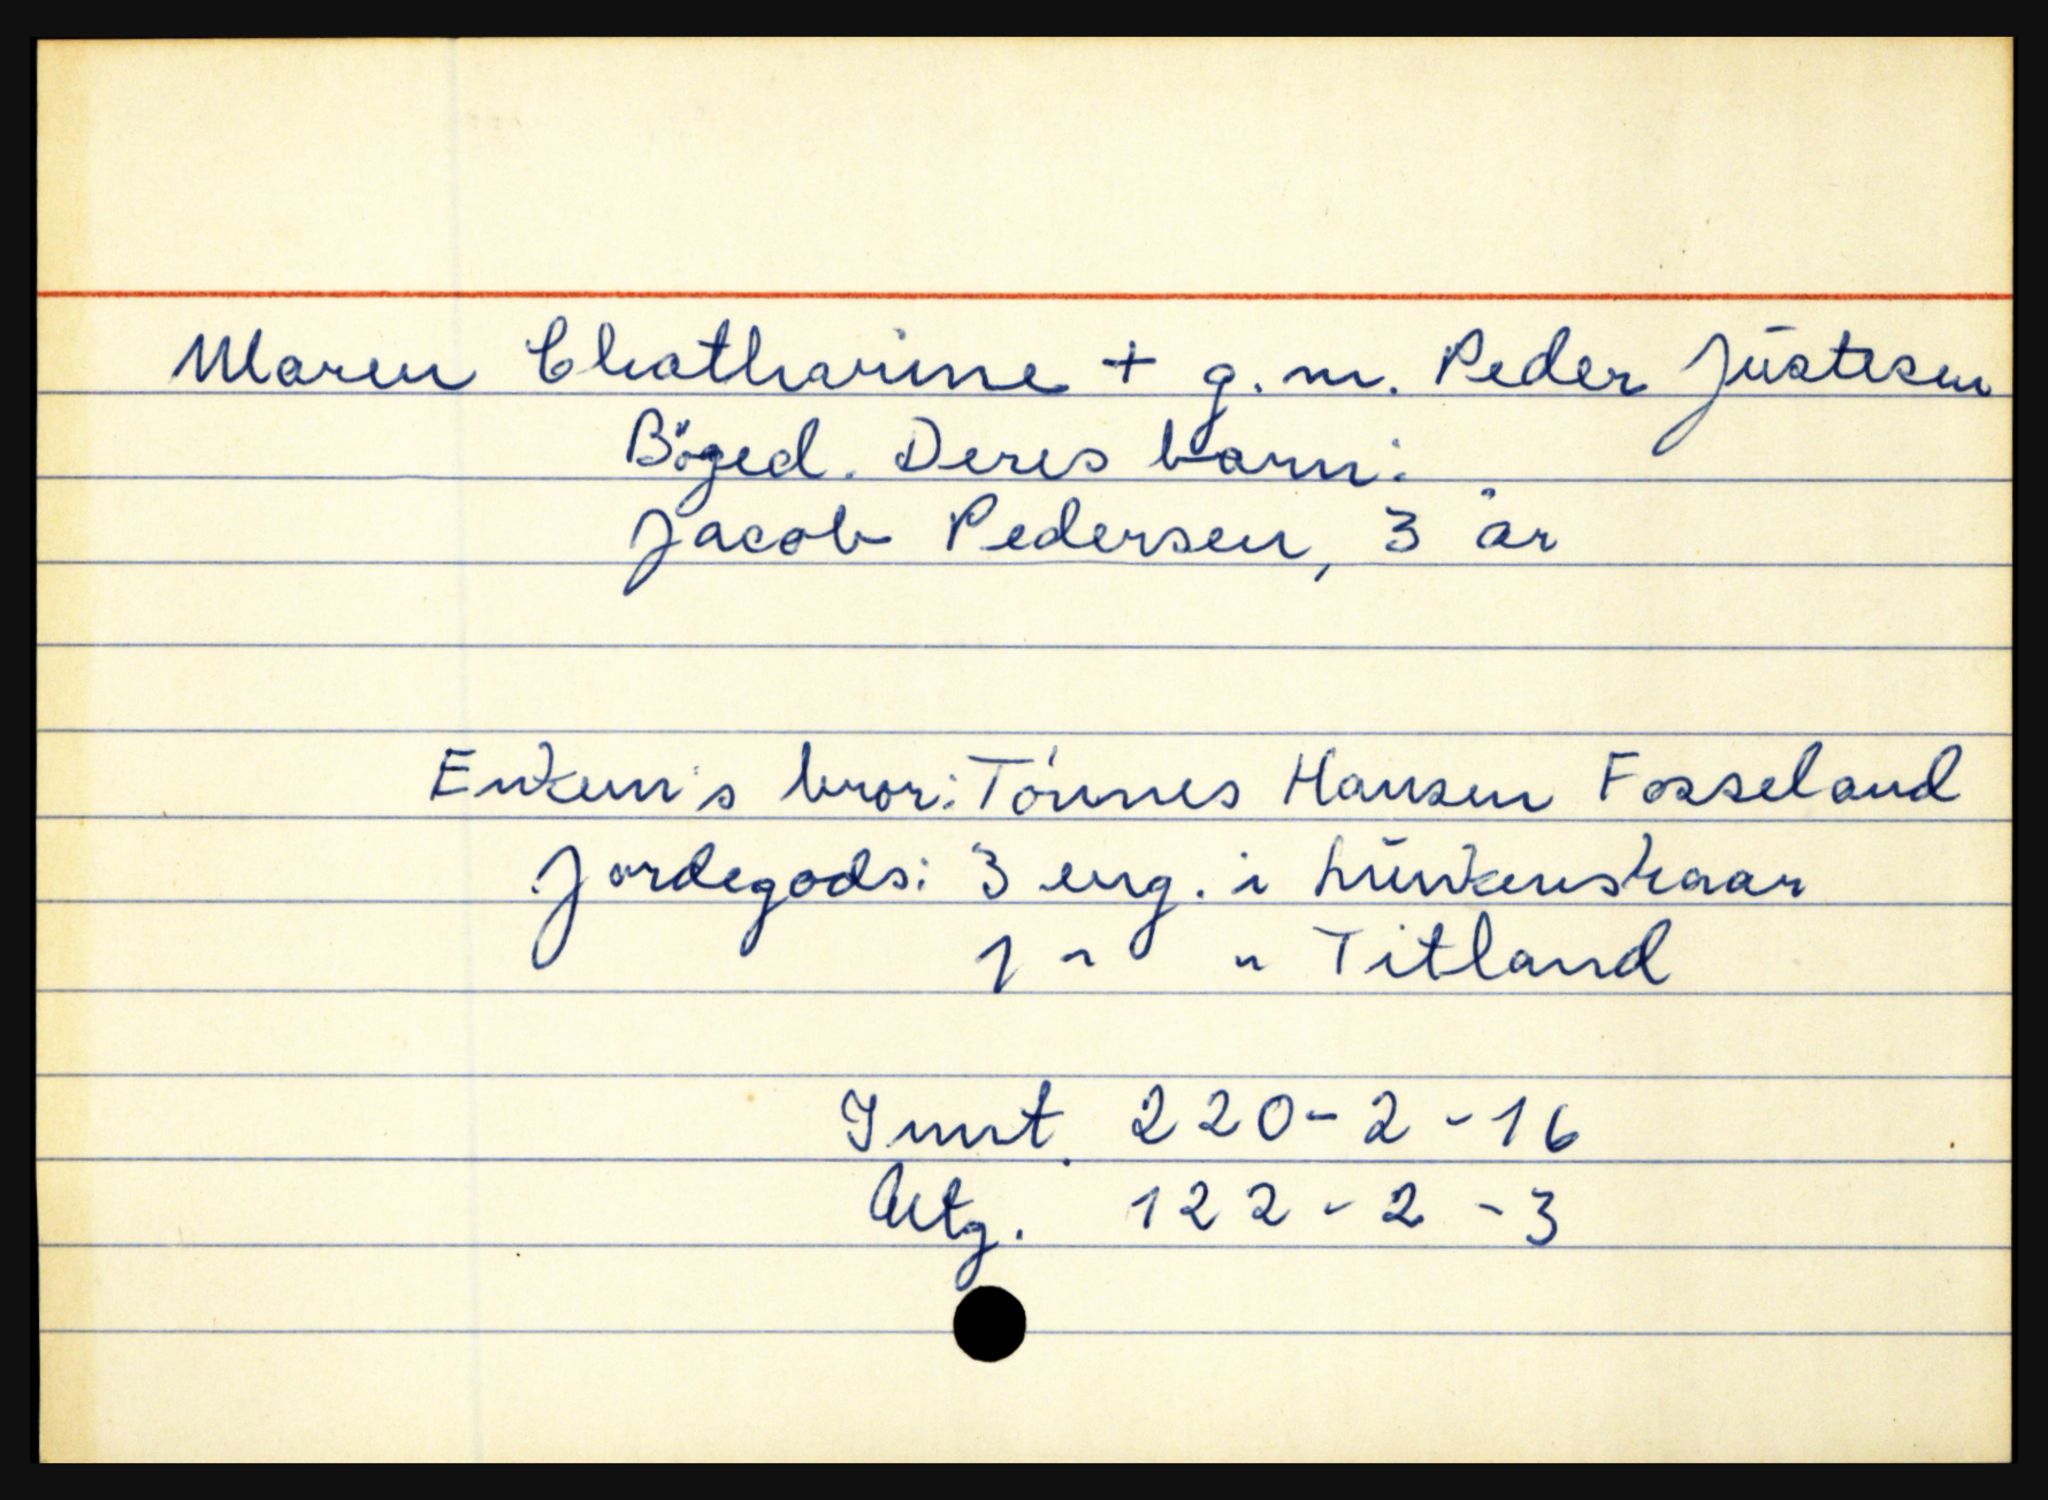 Maren Chatharine + g. m. Peder Jūstesen
Böged. Deres barn:
Jacob Pedersen, 3 år
Enken's bror: Tönnes Hansen Fosseland
Jordegods: 3 eng. i Lūnkenskaar
1 " " Titland
Innt. 220-2-16
Utg. 122-2-3